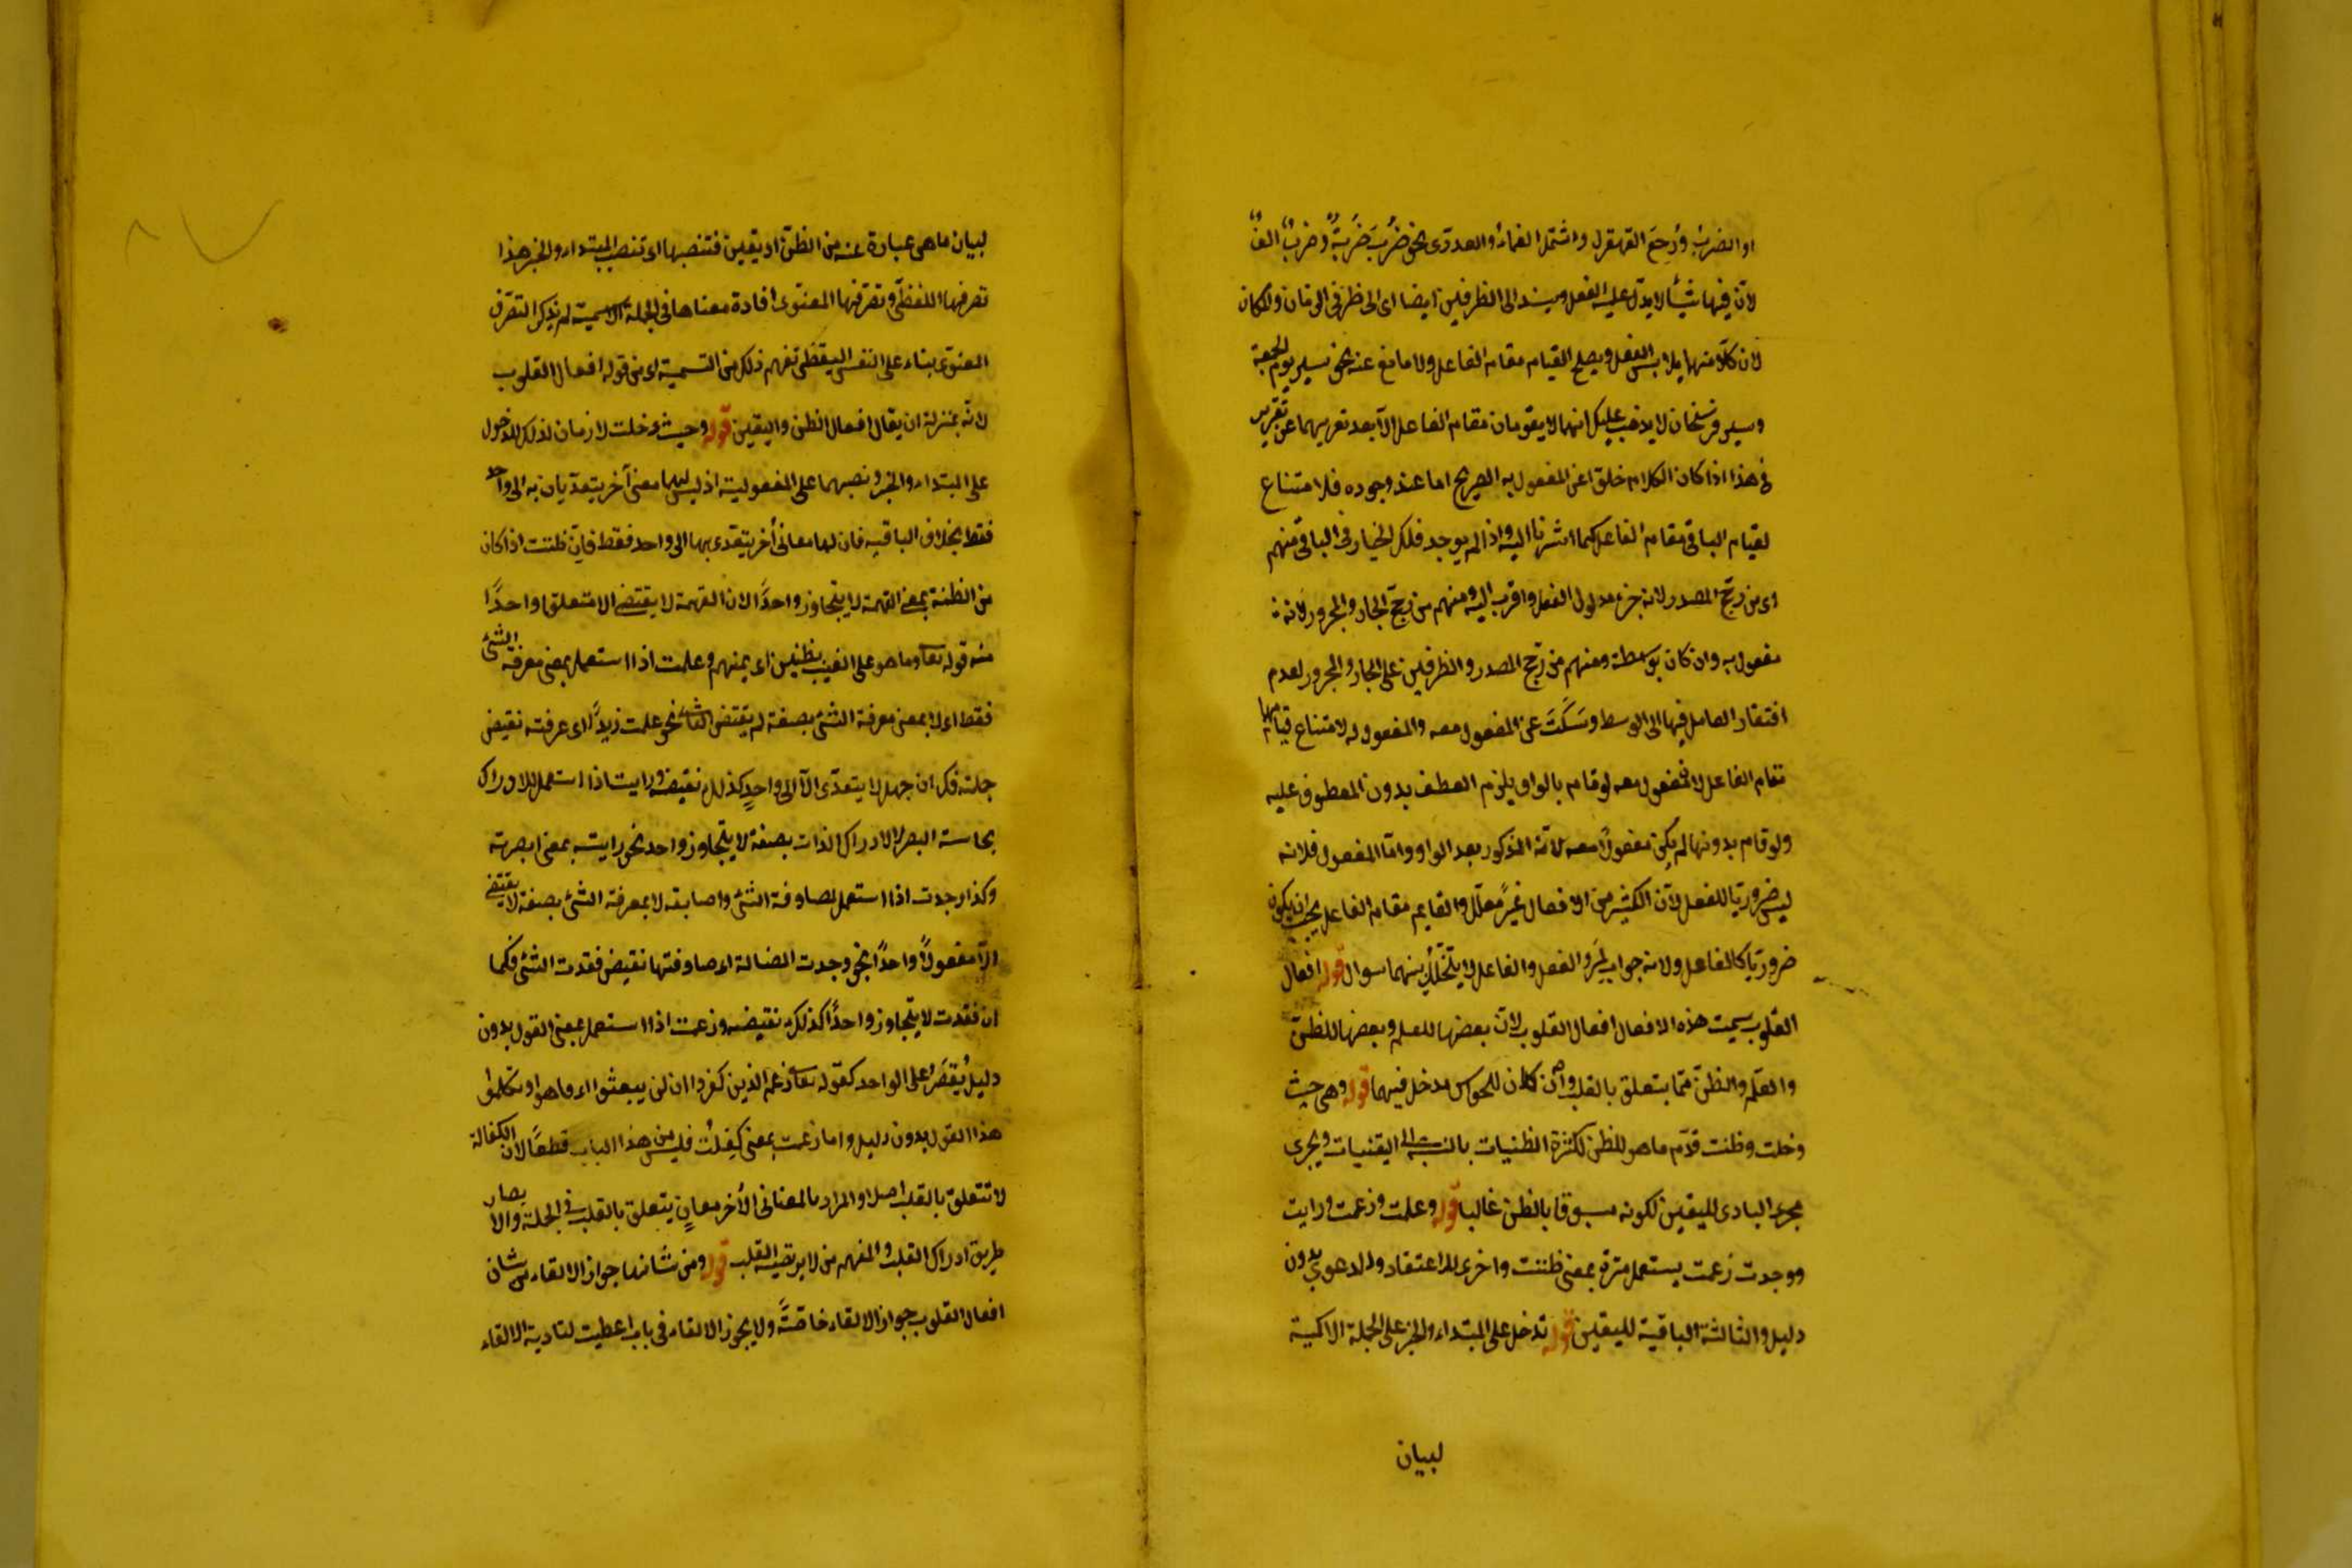 او الضربُ ورُجِعَ القهقرى واشتمل الصماء والعددى نحو ضُرِبَ ضَربَةٌ وضرب الفٌ
لان فيها شيئا لا يدل عليه الفعل ويسند الى الظرفين ايضا اى الى ظرفى الزمان والمكان
لان كلا منهما يلابس الفعل ويصلح لقيام مقام الفاعل ولا مانع عنه نحو سير يوم الجمعة
وسير فرسخان لا يذهب عليك انهما لا يقومان مقام الفاعل الا بعد تعريهما عن تقرير
فى هذا اذا كان الكلام خلوا عن المفعول به الصريح اما عند وجوده فلا متناع
لقيام الباقى مقام الفاعل كما اشرنا اليه واذا لم يوجد فلك الخيار فى الباقى منهم
اى من رجح المصدر لانه جزء مدلول الفعل واقرب اليه ومنهم من رجح الجار والمجرور لانه
مفعول به وان كان بوسطة ومنهم من رجح المصدر والظرفين على الجار والمجرور لعدم
افتقار العامل فيها الى الوسط وسَكَتَ عن المفعول معه والمفعول له لامتناع قيامهما
مقام الفاعل لان المفعول معه لو قام بالواو يلزم العطف بدون المعطوف عليه
ولو قام بدونها لم يكن مفعولا معه لانه المذكور بعد الواو واما المفعول فلانه
ليس ضروريا للفعل لان الكثير من الافعال غير معلل والقايم مقام الفاعل يجب ان يكون
ضروريا كالفاعل ولانه جواب لِمَ والفعل والفاعل لا يتخلل بينهما سوال قوله افعال
القلوب سميت هذه الافعال افعال القلوب لان بعضها للعلم وبعضها للظن
والعلم والظن مما يتعلق بالقلب وان كان للحواس مدخل فيهما قوله وهى حسبت
وخلت وظننت قدم ما هو للظن لكثرة الظنيات بالنسبة الى اليقنيات ويجرى
مجرى البادى لليقين لكونه مسبوقا بالظن غالبا قوله وعلمت وزعمت ورايت
ووجدت زعمت يستعمل مرة بمعنى ظننت واخرى للاعتقاد والدعوى بدون
دليل والثالثة الباقية لليقين قوله تدخل على المبتداء والخبر على الجملة الاسمية
لبيان
لبيان ما هى عبارة عنه من الظن او يقين فتنصبها اى تنصب المبتداء والخبر هذا
تصرفها اللفظى وتصرفها المعنوى افادة معناها فى الجملة الاسمية لم يذكر التصرف
المعنوى بناء على النفس اليقظى تفهم ذلك من التسمية اى من قوله افعال القلوب
لانه بمنزلة ان يقال افعال الظن واليقين قوله وحيث دخلت لازمان لذلك للدخول
على المبتداء والخبر ونصبهما على المفعولية اذ ليس لهما معنى آخر يتعديان به الى واحد
فقط بخلاف الباقية فان لها معانى أُخر يتعدى بها الى واحد فقط فان ظننت اذا كان
من الظنة بمعنى التهمة لا يتجاوز واحدًا لان التهمة لا يقتضى الا متعلقا واحدًا
منه قوله تعا وما هو على الغيب بظنين اى بمتهم وعلمت اذا استعمل بمعنى معرفة الشئ
فقط اى لا بمعنى معرفة الشئ بصفة لم يقتض الثانى نحو علمت زيدًا اى عرفته نقيض
جهلته فكما ان جهل لا يتعدى الا الى واحدٍ كذلك نقيضه ورايت اذا استعمل للادراك
بحاسة البصر لا لادراك الذات بصفة لا يتجاوز واحد نحو رايته بمعنى ابصرته
وكذا وجدت اذا استعمل لمصادفة الشئ واصابته لا بمعرفة الشئ بصفة لا يقتضى
الا مفعولًا واحدًا نحو وجدت الضالة اى صادفتها نقيض فقدت الشئ فكما
ان فقدت لا يتجاوز واحدًا كذلك نقيضه وزعمت اذا استعمل بمعنى القول بدون
دليل يُقصَر على الواحد كقوله تعا زعم الذين كفروا ان لن يبعثوا اى ما هو او تكلموا
هذا القول بدون دليل واما زعمت بمعنى كَفِلتُ فليس من هذا الباب قطعًا لان الكفالة
لا تتعلق بالقلب اصلا والمراد بالمعانى الأُخر معانٍ يتعلق بالقلب فى الجملة والابصار
طريق ادراك القلب والمفهم من لا يرتضيه القلب قوله ومن شانها جواز الالغاء من شان
افعال القلوب جواز الالغاء خاصّةً ولا يجوز الالغاء فى باب اعطيت لتادية الالغاء